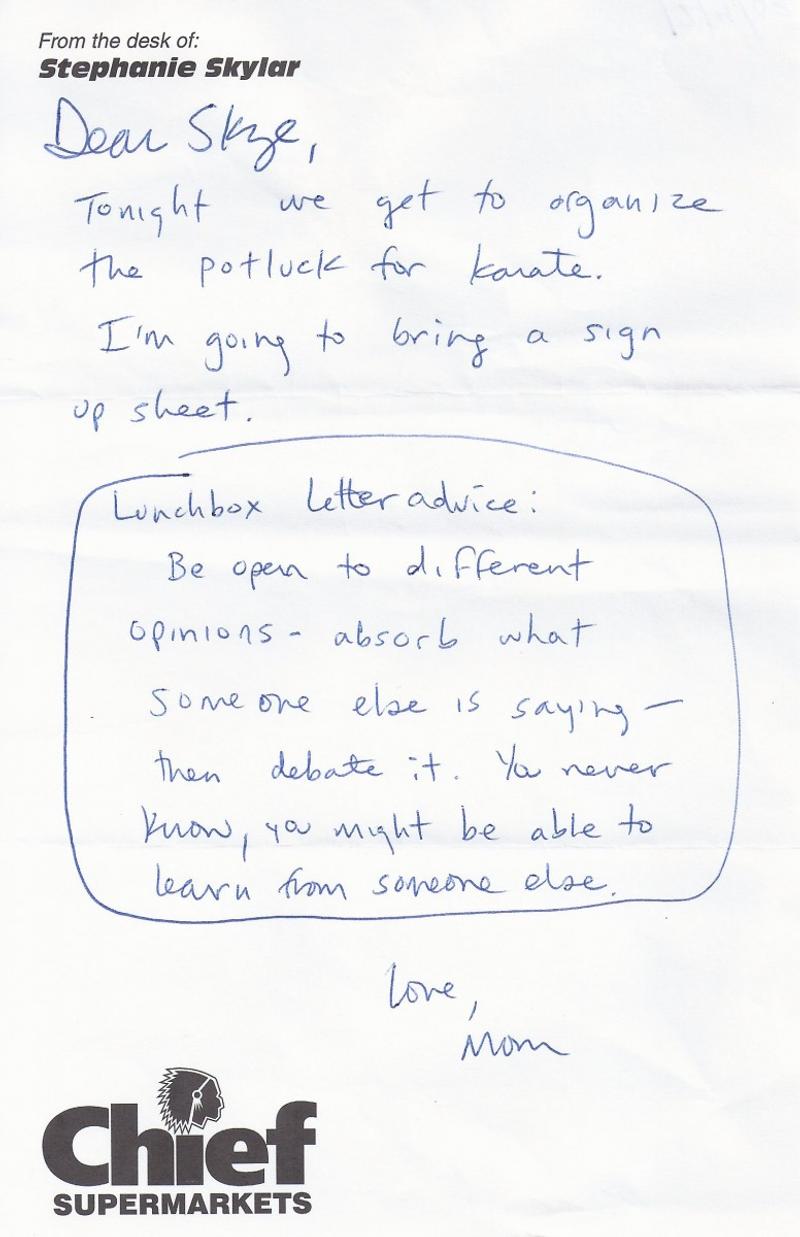 From the desk of:
Stephanie Skylar
Dear Skye,
Tonight we get to organize
the potluck for karate.
I'm going to bring a sign
up sheet.
Lunchbox Letter advice:
Be open to different
opinions - absorb what
someone else is saying -
then debate it. You never
know, you might be able to
learn from someone else.
Love,
Mom
Chief
SUPERMARKETS